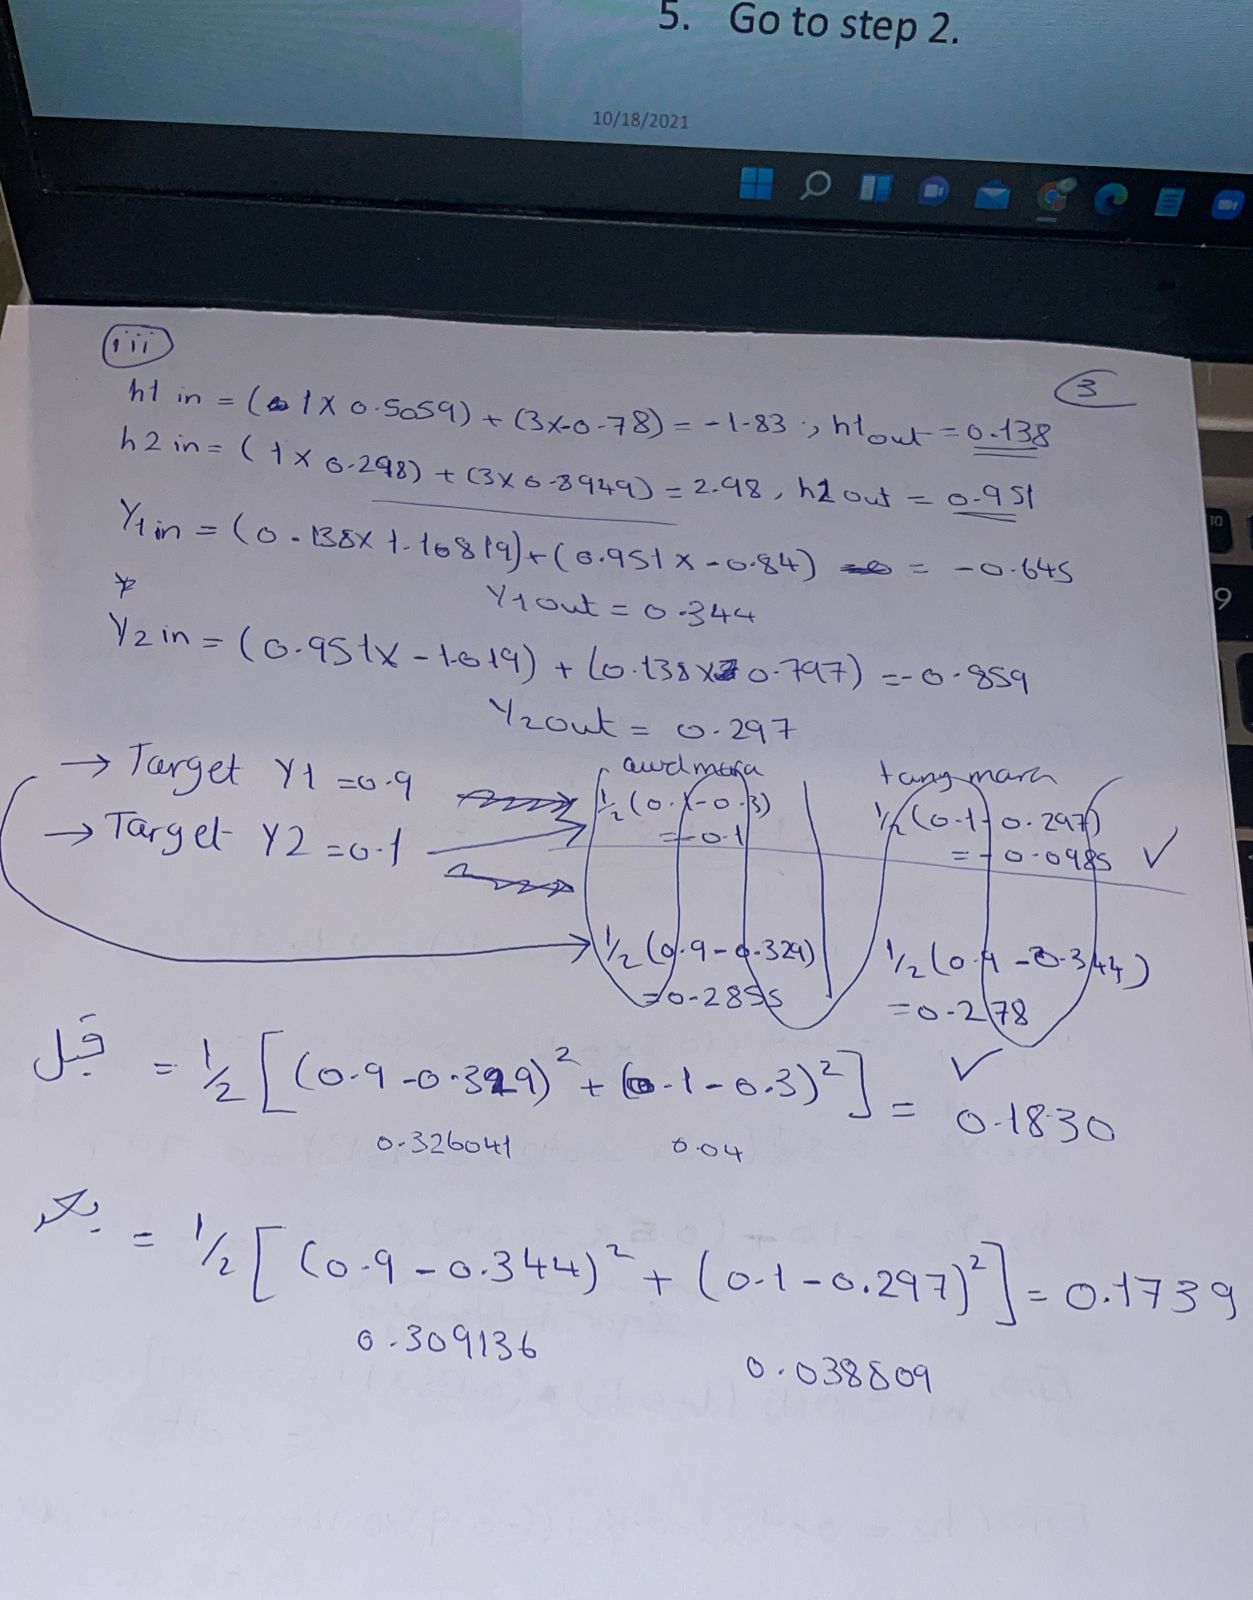 5. Go to step 2.
10/18/2021
iii
3
h1 in = (1 x 0.5059) + (3x-0.78) = -1.83 , h1out = 0.138
h2 in = (1 x 0.298) + (3 x 0.8949) = 2.98, h2 out = 0.951
Y1 in = (0.138 x 1.10819) + (0.951 x -0.84) = -0.645
Y1 out = 0.344
Y2 in = (0.951 x -1.019) + (0.138 x 0.797) = -0.859
Y2out = 0.297
→ Target Y1 = 0.9
→ Target Y2 = 0.1
awdmara
1/2 (0.1-0.3)
= -0.1
tany mara
1/2 (0.1-0.297)
= -0.0985 ✓
1/2 (0.9-0.329)
= 0.2855
1/2 (0.9-0.344)
= 0.278
✓
قبل = 1/2 [(0.9-0.329)² + (0.1-0.3)²] = 0.1830
0.326041 0.04
بعد = 1/2 [(0.9-0.344)² + (0.1-0.297)²] = 0.1739
0.309136
0.038809